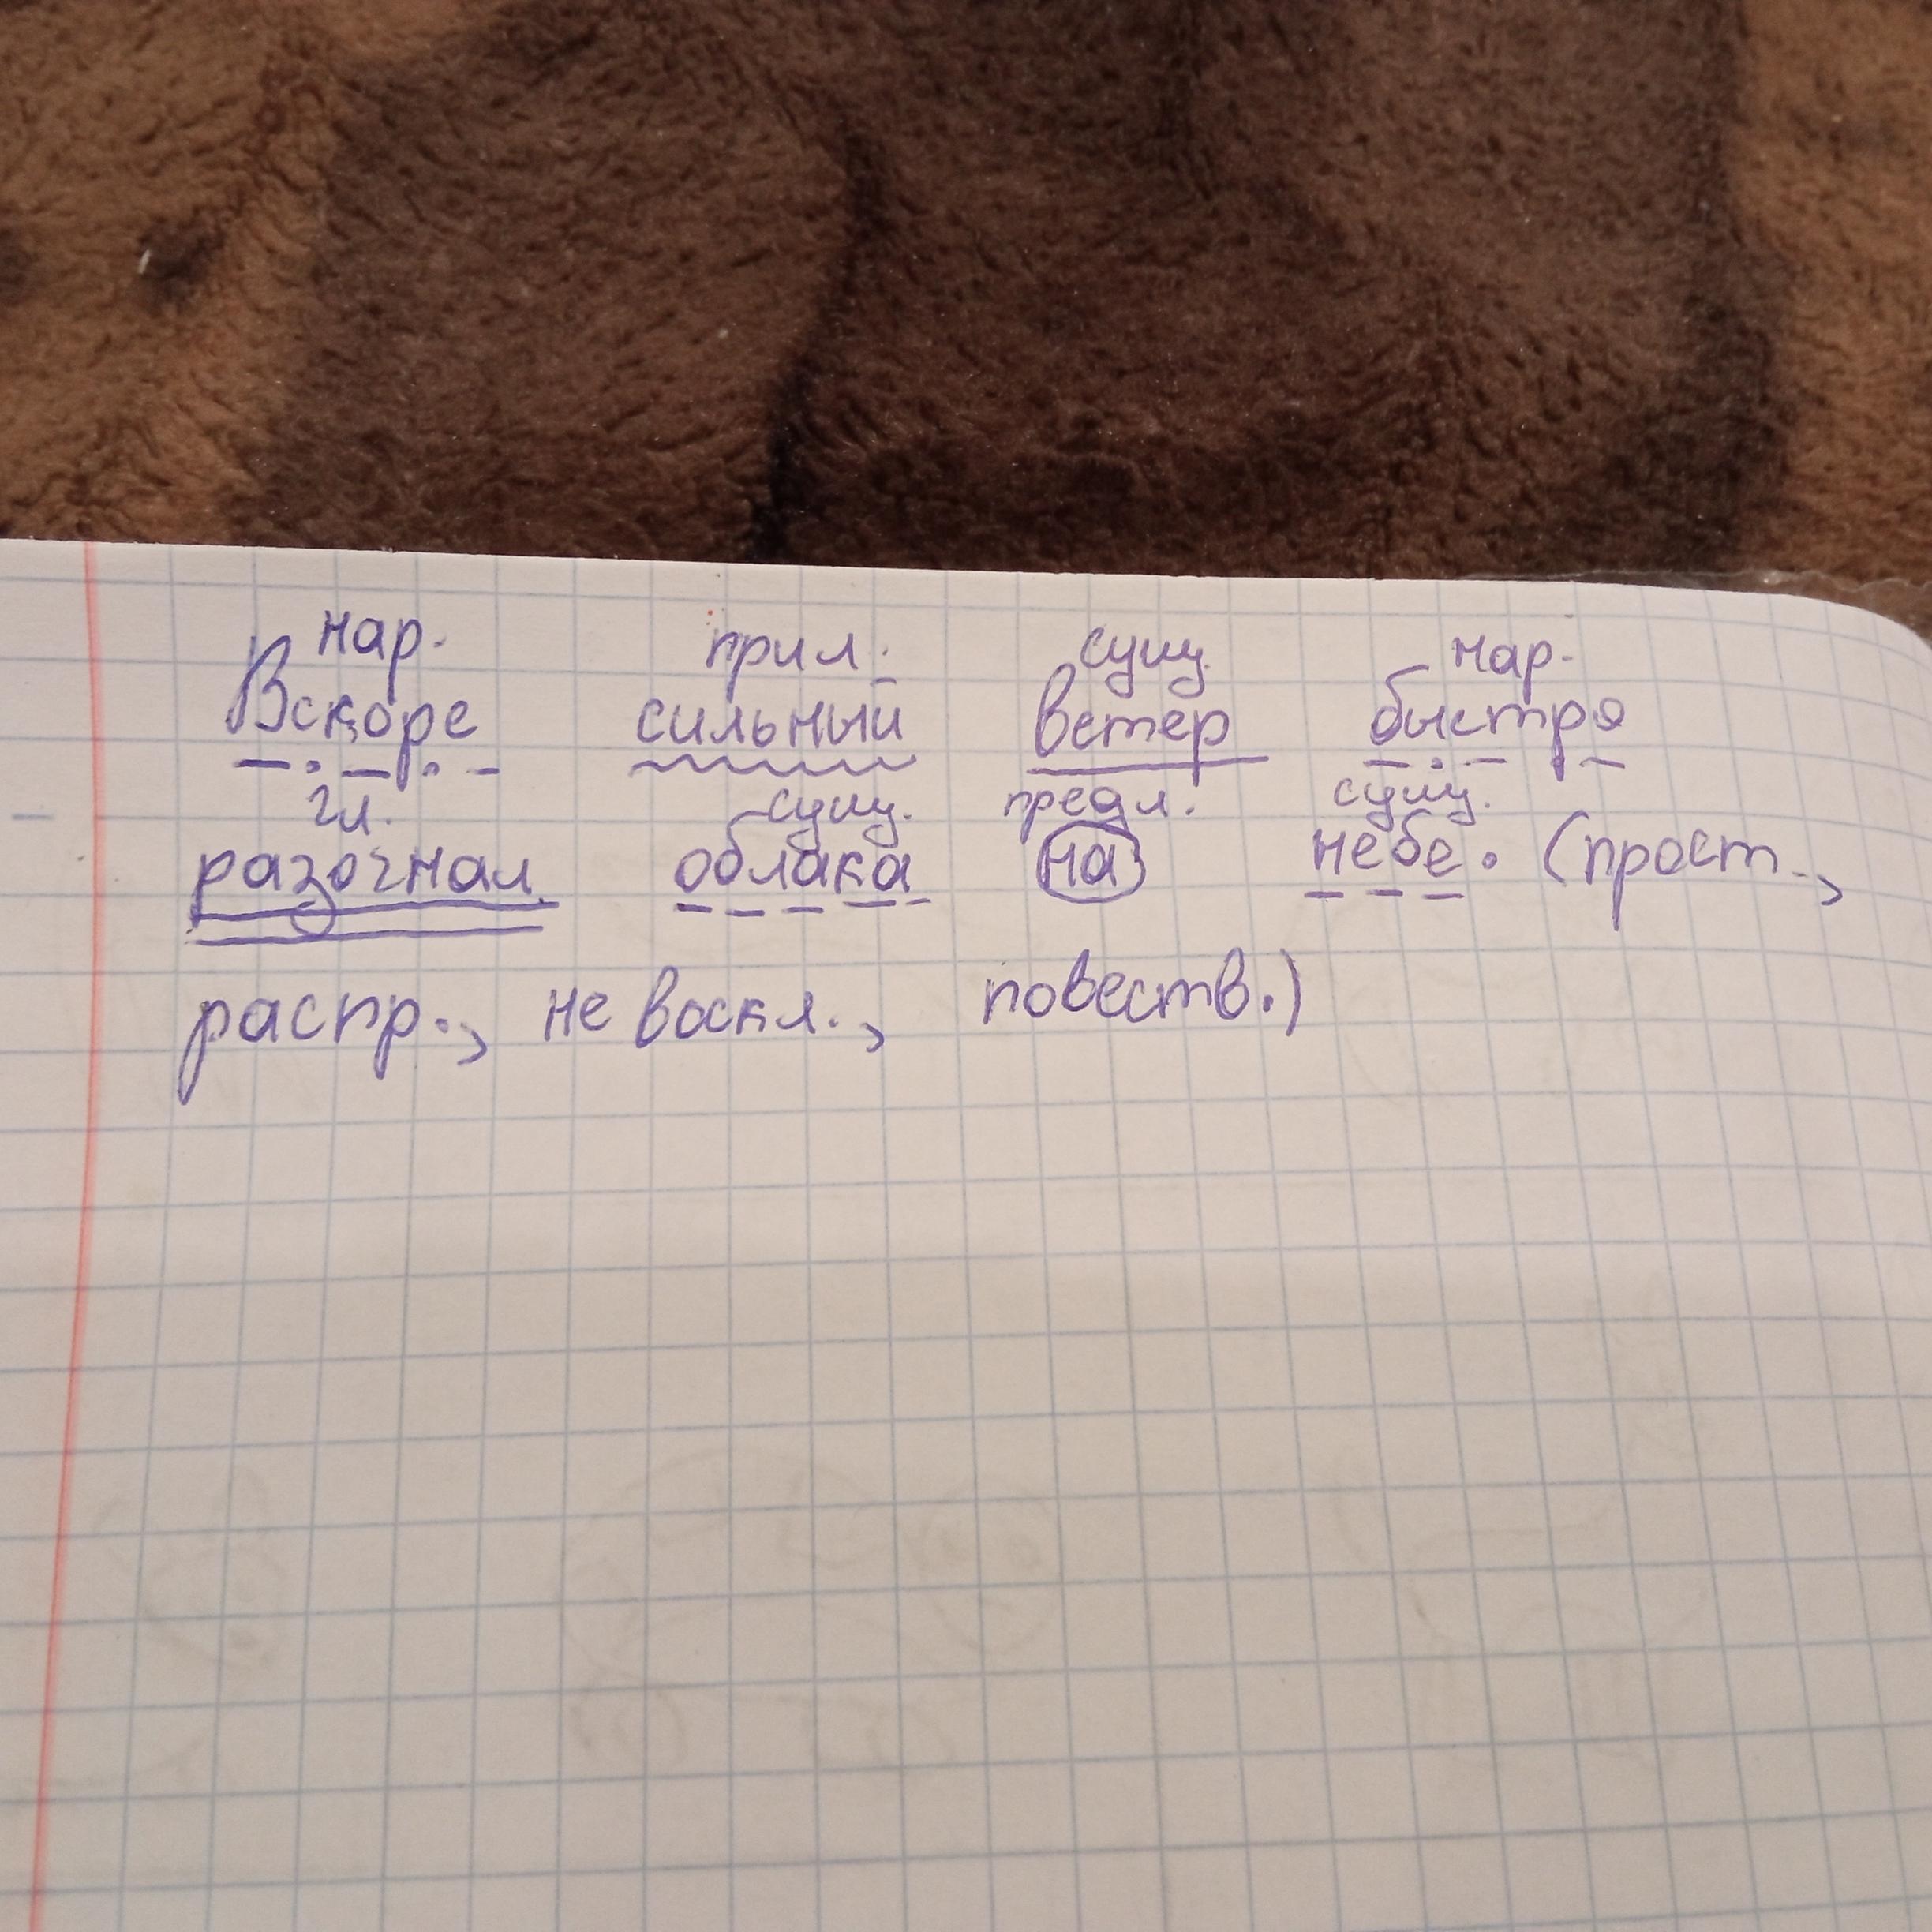 нар. прил. сущ. нар.
Вскоре сильный ветер быстро
гл. сущ. предл. сущ.
разогнал облака на небе. (прост.,
распр., не воскл., повеств.)